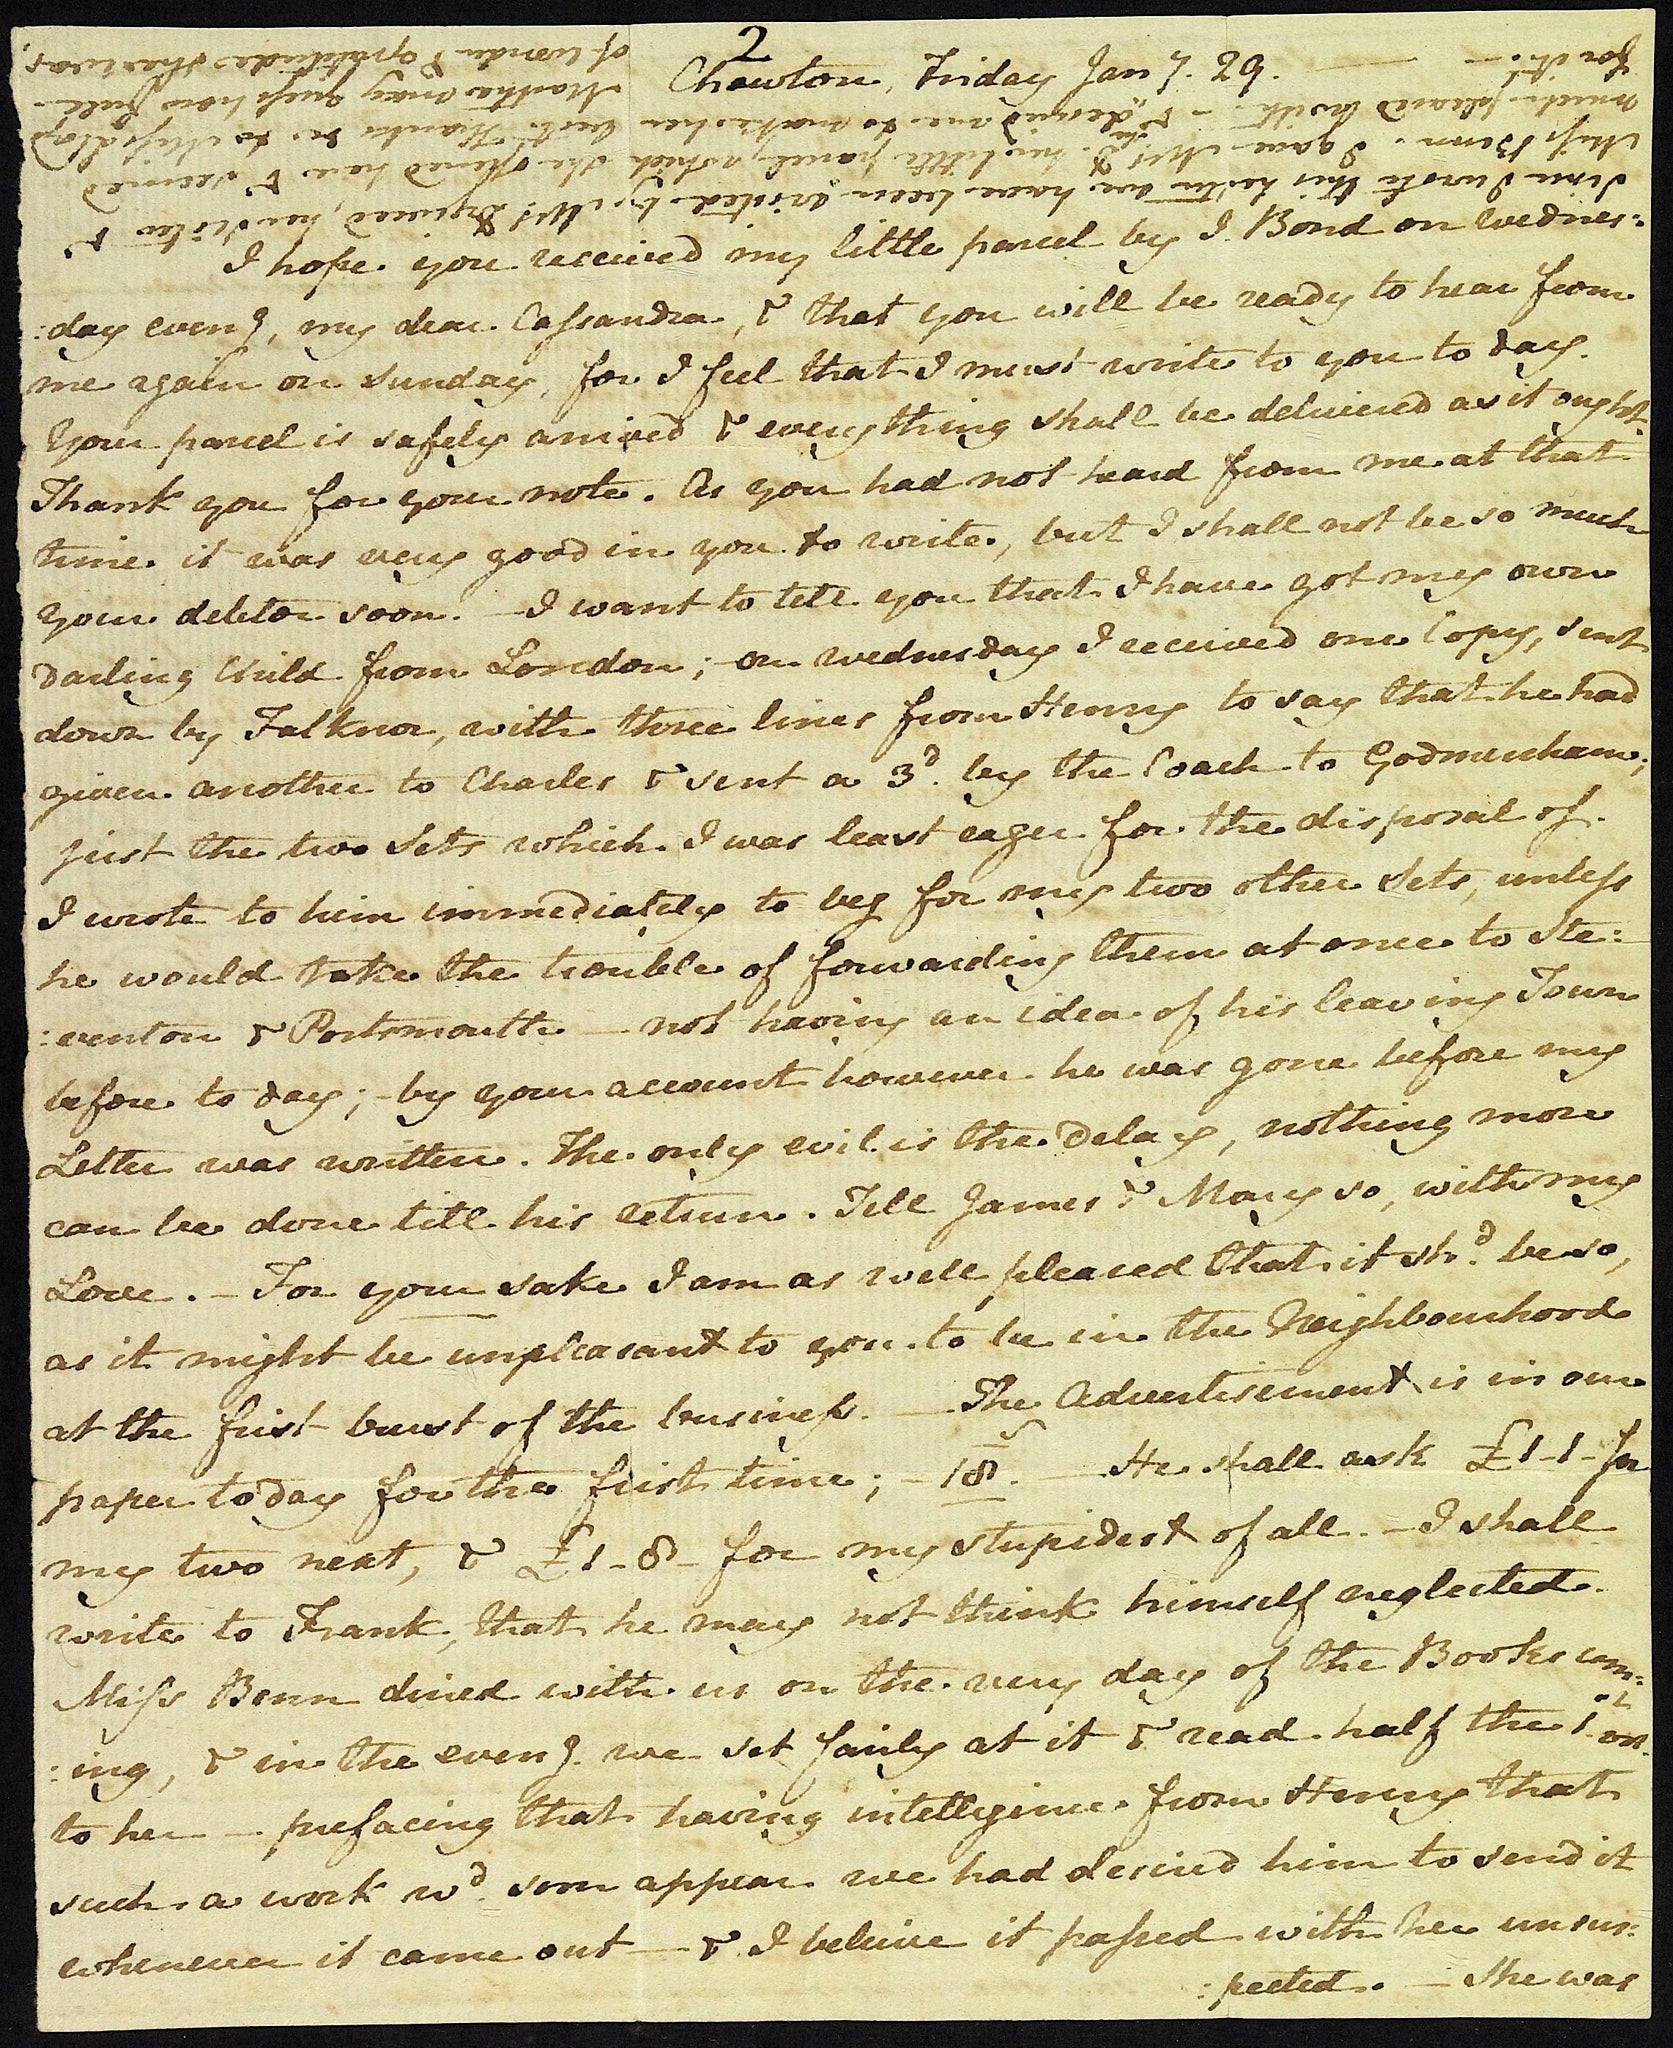 2
Chawton, Friday Jany. 29.
I hope you received my little parcel by J. Bond on Wednes:
:day eveng, my dear Cassandra, & that you will be ready to hear from
me again on Sunday, for I feel that I must write to you to day.
Your parcel is safely arrived & everything shall be delivered as it ought.
Thank you for your note. As you had not heard from me at that
time it was very good in you to write, but I shall not be so much
your debtor soon. - I want to tell you that I have got my own
darling Child from London; - on Wednesday I received one Copy, sent
down by Falknor, with three lines from Henry to say that he had
given another to Charles & sent a 3d. by the Coach to Godmersham;
just the two Sets which I was least eager for the disposal of.
I wrote to him immediately to beg for my two other Sets, unless
he would take the trouble of forwarding them at once to Ste:
:venton & Portsmouth - not having an idea of his leaving Town
before to day; - by your account however he was gone before my
Letter was written. The only evil is the delay, nothing more
can be done till his return. Tell James & Mary so, with my
Love. - For your sake I am as well pleased that it shd. be so,
as it might be unpleasant to you to be in the Neighbourhood
at the first burst of the business. - The Advertisement is in our
paper to day for the first time; - 18s. - He shall ask £1-1- for
my two next, & £1-8- for my stupidest of all. - I shall
write to Frank, that he may not think himself neglected.
Miss Benn dined with us on the very day of the Books com:
:ing, & in the eveng. we set fairly at it & read half the 1st. vol.
to her - prefacing that having intelligence from Henry that
such a work wd. soon appear we had desired him to send it
whenever it came out - & I believe it passed with her unsus:
:pected. - She was
Since I wrote this Letter we have been visited by Mrs. Digweed, her Sister &
Miss Benn. I gave Mrs. D. her little parcel, which she opened here & seemed
much pleased with - & she desired me to make her best Thanks &c. to Miss Lloyd
for it. - Martha may guess how full
of wonder & gratitude she was.